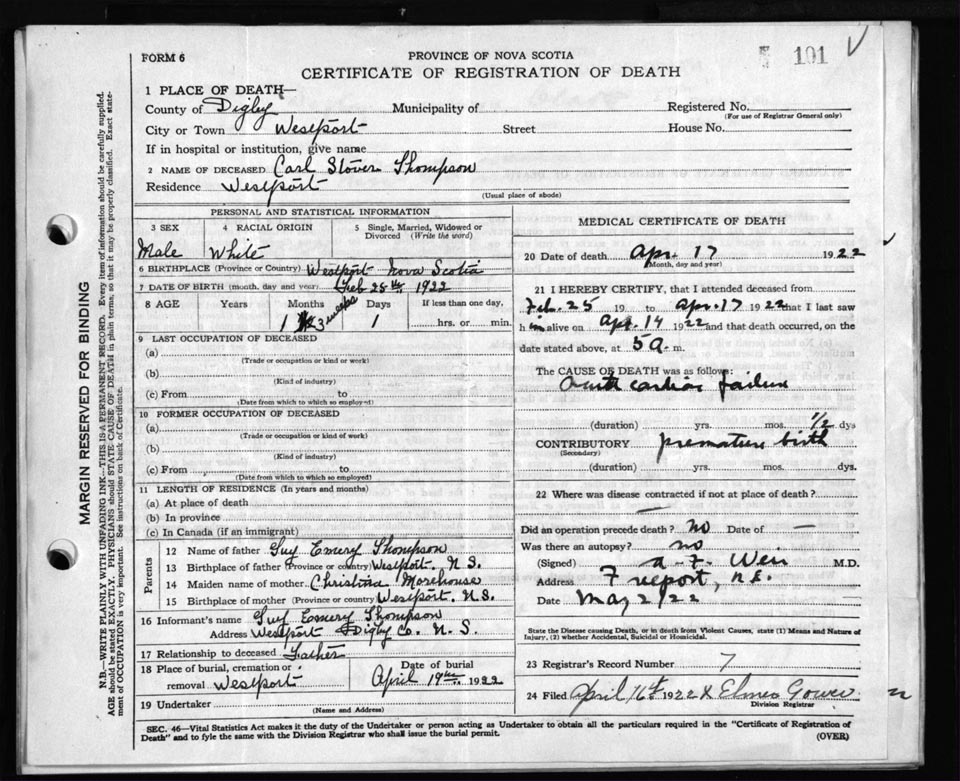 101 V
FORM 6
PROVINCE OF NOVA SCOTIA
CERTIFICATE OF REGISTRATION OF DEATH
1 PLACE OF DEATH—
County of Digby Municipality of Registered No.
(For use of Registrar General only)
City or Town Westport Street House No.
If in hospital or institution, give name
2 NAME OF DECEASED Carl Stover Thompson
Residence Westport
(Usual place of abode)
PERSONAL AND STATISTICAL INFORMATION
3 SEX 4 RACIAL ORIGIN 5 Single, Married, Widowed or Divorced (Write the word)
Male White
6 BIRTHPLACE (Province or Country) Westport Nova Scotia
7 DATE OF BIRTH (month, day and year) Feb 25th 1922
8 AGE Years Months Days If less than one day,
1 3 weeks 1 hrs. or min.
9 LAST OCCUPATION OF DECEASED
(a)
(Trade or occupation or kind of work)
(b)
(Kind of industry)
(c) From to
(Date from which to which so employed)
10 FORMER OCCUPATION OF DECEASED
(a)
(Trade or occupation or kind of work)
(b)
(Kind of industry)
(c) From to
(Date from which to which so employed)
11 LENGTH OF RESIDENCE (In years and months)
(a) At place of death
(b) In province
(c) In Canada (if an immigrant)
Parents
12 Name of father Guy Emery Thompson
13 Birthplace of father (Province or country) Westport. N S.
14 Maiden name of mother Christina Morehouse
15 Birthplace of mother (Province or country) Westport. N.S.
16 Informant's name Guy Emery Thompson
Address Westport Digby Co. N. S.
17 Relationship to deceased Father
18 Place of burial, cremation or removal Westport Date of burial April 19th 1922
19 Undertaker
(Name and Address)
MEDICAL CERTIFICATE OF DEATH
20 Date of death Apr. 17 1922
(Month, day and year)
21 I HEREBY CERTIFY, that I attended deceased from
Feb. 25 19 to Apr. 17 1922 that I last saw
h im alive on Apr. 14 1922 and that death occurred, on the
date stated above, at 5 a. m.
The CAUSE OF DEATH was as follows:
Acute cardiac failure
(duration) yrs. mos. 1/2 dys
CONTRIBUTORY premature birth
(Secondary)
(duration) yrs. mos. dys.
22 Where was disease contracted if not at place of death?
—
Did an operation precede death? no Date of —
Was there an autopsy? no
(Signed) A. F. Weir M.D.
Address Freeport, N.S.
Date May 2/22
State the Disease causing Death, or in death from Violent Causes, state (1) Means and Nature of
Injury, (2) whether Accidental, Suicidal or Homicidal.
23 Registrar's Record Number 7
24 Filed April 16th 1922 Elmer Gower
Division Registrar
SEC. 46—Vital Statistics Act makes it the duty of the Undertaker or person acting as Undertaker to obtain all the particulars required in the "Certificate of Registration of
Death" and to fyle the same with the Division Registrar who shall issue the burial permit. (OVER)
MARGIN RESERVED FOR BINDING
N.B.—WRITE PLAINLY WITH UNFADING INK—THIS IS A PERMANENT RECORD. Every item of information should be carefully supplied.
AGE should be stated EXACTLY. PHYSICIANS should STATE CAUSE OF DEATH in plain terms, so that it may be properly classified. Exact state-
ment of OCCUPATION is very important. See instructions on back of Certificate.